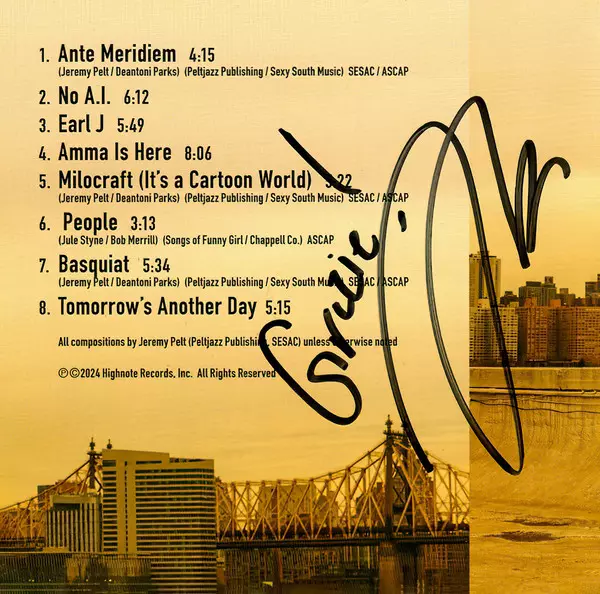 1. Ante Meridiem 4:15
(Jeremy Pelt / Deantoni Parks) (Peltjazz Publishing / Sexy South Music) SESAC / ASCAP
2. No A.I. 6:12
3. Earl J 5:49
4. Amma Is Here 8:06
5. Milocraft (It's a Cartoon World) 5:22
(Jeremy Pelt / Deantoni Parks) (Peltjazz Publishing / Sexy South Music) SESAC / ASCAP
6. People 3:13
(Jule Styne / Bob Merrill) (Songs of Funny Girl / Chappell Co.) ASCAP
7. Basquiat 5:34
(Jeremy Pelt / Deantoni Parks) (Peltjazz Publishing / Sexy South Music) SESAC / ASCAP
8. Tomorrow's Another Day 5:15
All compositions by Jeremy Pelt (Peltjazz Publishing, SESAC) unless otherwise noted
Ⓟ©2024 Highnote Records, Inc. All Rights Reserved
Grazie!